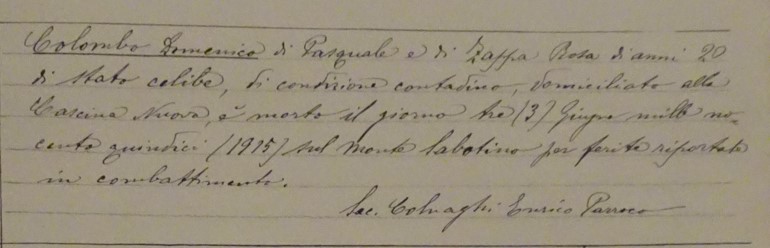 Colombo Domenico di Pasquale e di Zappa Rosa di anni 20
di stato celibe, di condizione contadino, domiciliato alla
Cascina Nuova, è morto il giorno tre (3) Giugno mille no-
cento quindici (1915) sul monte Sabotino per ferite riportate
in combattimento.
Sac. Colnaghi Enrico Parroco